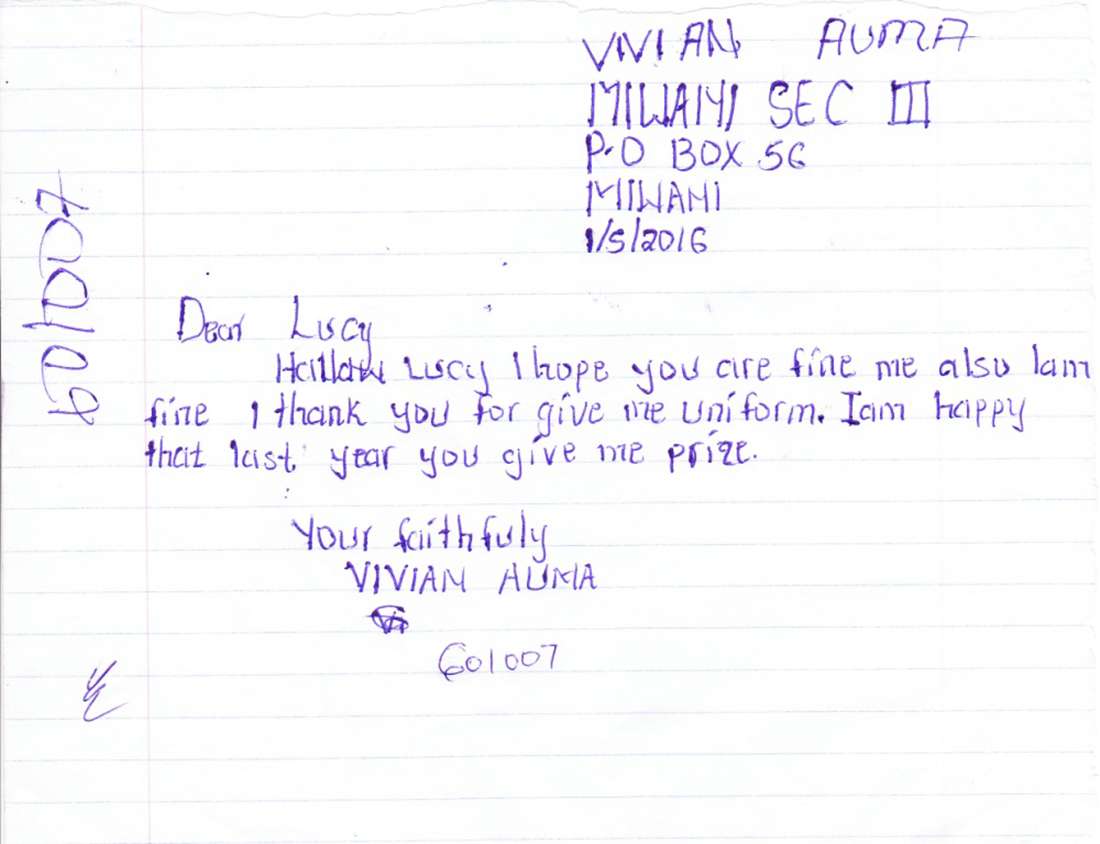 VIVIAN AUMA
MIWANI SEC III
P.O BOX 56
MIWANI
1/5/2016
601007
Dear Lucy
Hallow Lucy I hope you are fine me also Iam
fine I thank you for give me uniform. Iam happy
that last year you give me prize.
Your faithfuly
VIVIAN AUMA
601007